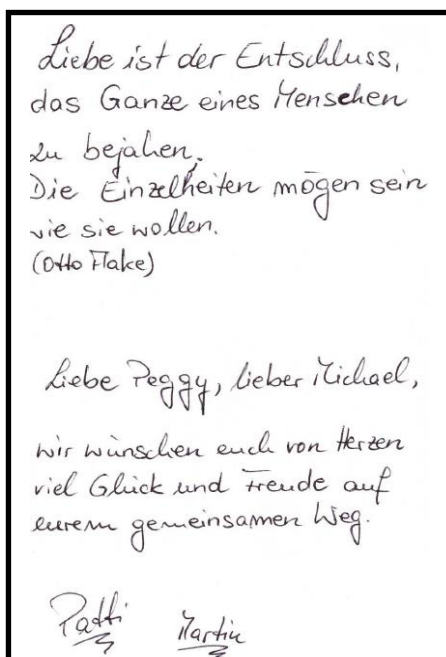 Liebe ist der Entschluss,
das Ganze eines Menschen
zu bejahen,
Die Einzelheiten mögen sein
wie sie wollen.
(Otto Flake)
Liebe Peggy, lieber Michael,
wir wünschen euch von Herzen
viel Glück und Freude auf
eurem gemeinsamen Weg.
Patti Martin